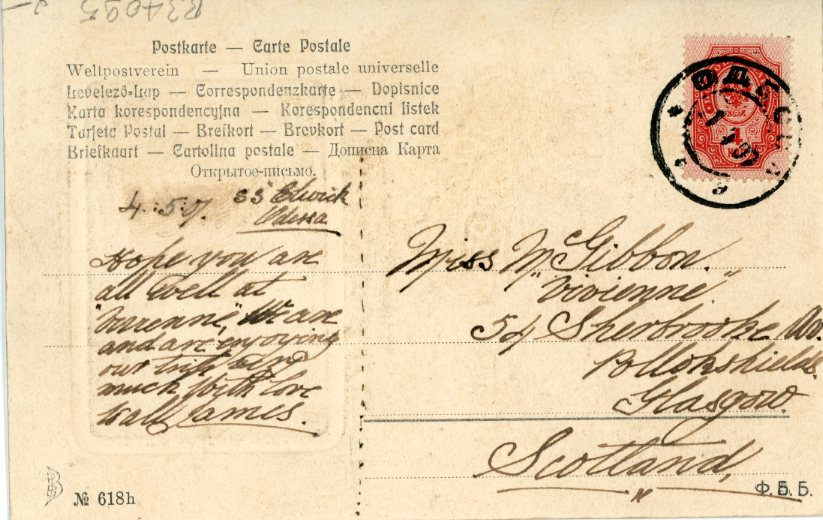 R34095
Postkarte — Carte Postale
Weltpostverein — Union postale universelle
Levelező-Lap — Correspondenzkarte — Dopisnice
Karta korespondencyjna — Korespondencní listek
Tarjeta Postal — Breikort — Brevkort — Post card
Briefkaart — Cartolina postale — Дописна Карта
Открытое-письмо.
4.:5:07. SS Elwick
Odessa
Hope you are
all well at
We are
and are enjoying
our trip very
much With love
to all James.
Miss McGibbon.
"Vivienne"
54 Sherbrooke Av.
Pollokshields.
Glasgow.
Scotland,
ОДЕССА
4
№ 618h
Ф.Б.Б.